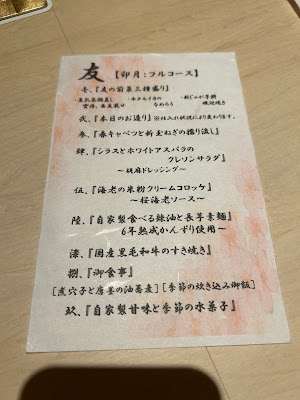 友【卯月：フルコース】
壱、『友の前菜三種盛り』
・豆乳茶碗蒸し 雲丹、養童載せ
・ホタルイカのなめろう
・新じゃが串餅 磯辺焼き
弐、『本日のお造り』※仕入れ状況により変わります。
参、『春キャベツと新玉ねぎの摺り流し』
肆、『シラスとホワイトアスパラの
クレソンサラダ』
～胡麻ドレッシング～
伍、『海老の米粉クリームコロッケ』
～桜海老ソース～
陸、『自家製食べる辣油と長芋素麺』
6年熟成かんずり使用～
漆、『国産黒毛和牛のすき焼き』
捌、『御食事』
[煮穴子と唐墨の油蕎麦][季節の炊き込み御飯]
玖、『自家製甘味と季節の水菓子』